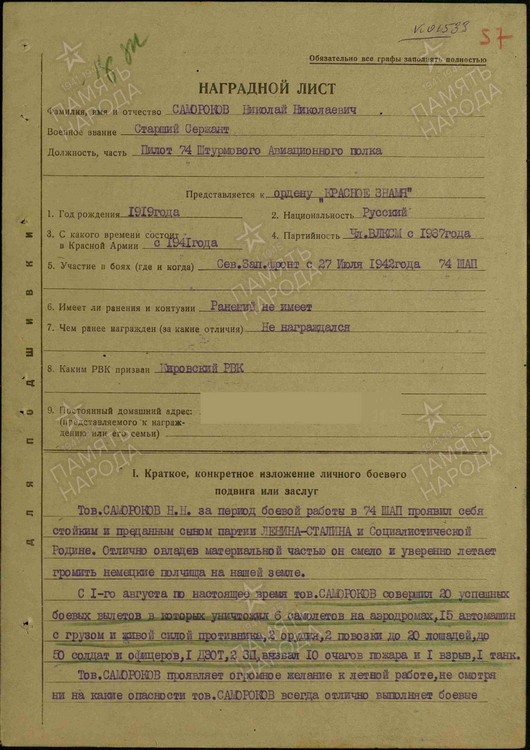 57
Обязательно все графы заполнять полностью
НАГРАДНОЙ ЛИСТ
Фамилия, имя и отчество САМОРОКОВ Николай Николаевич
Военное звание Старший Сержант
Должность, часть Пилот 74 Штурмового Авиационного полка
Представляется к ордену "КРАСНОЕ ЗНАМЯ"
1. Год рождения 1919года 2. Национальность Русский
3. С какого времени состоит в Красной Армии с 1941года 4. Партийность Чл.ВЛКСМ с 1937года
5. Участие в боях (где и когда) Сев.Зап.Фронт с 27 Июля 1942года 74 ШАП
6. Имеет ли ранения и контузии Ранений не имеет
7. Чем ранее награжден (за какие отличия) Не награждался
8. Каким РВК призван Кировский РВК
9. Постоянный домашний адрес:
(представляемого к награж-
дению или его семьи)
для подшивки
I. Краткое, конкретное изложение личного боевого
подвига или заслуг
Тов.САМОРОКОВ Н.Н. за период боевой работы в 74 ШАП проявил себя
стойким и преданным сыном партии ЛЕНИНА-СТАЛИНА и Социалистической
Родине. Отлично овладев материальной частью он смело и уверенно летает
громить немецкие полчища на нашей земле.
С I-го августа по настоящее время тов.САМОРОКОВ совершил 20 успешных
боевых вылетов в которых уничтожил 6 самолетов на аэродромах, 15 автомашин
с грузом и живой силой противника,2 орудия,2 повозки до 20 лошадей,до
50 солдат и офицеров,I ДЗОТ,2 ЗП,вызвал 10 очагов пожара и I взрыв,I танк.
Тов.САМОРОКОВ проявляет огромное желание к летной работе,не смотря
ни на какие опасности тов.САМОРОКОВ всегда отлично выполняет боевые
ПАМЯТЬ
НАРОДА